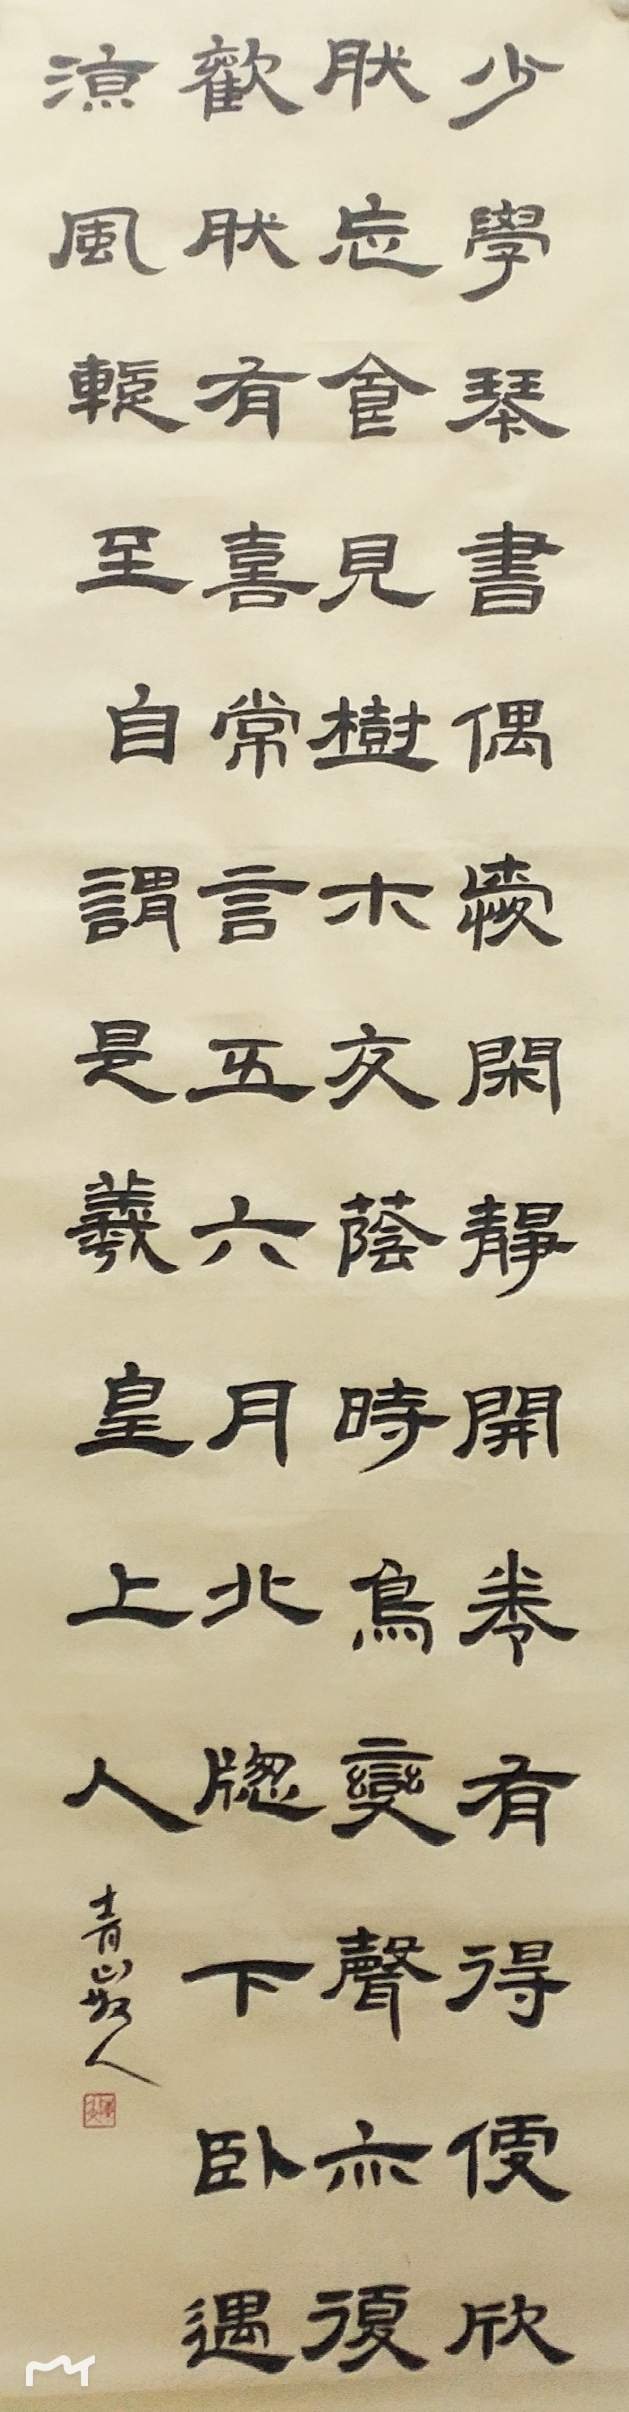 少學琴書偶愛閑靜開卷有得便欣
肰忘食見樹木交蔭時鳥變聲亦復
歡肰有喜常言五六月北牕下臥遇
涼風暫至自謂是羲皇上人
青山散人